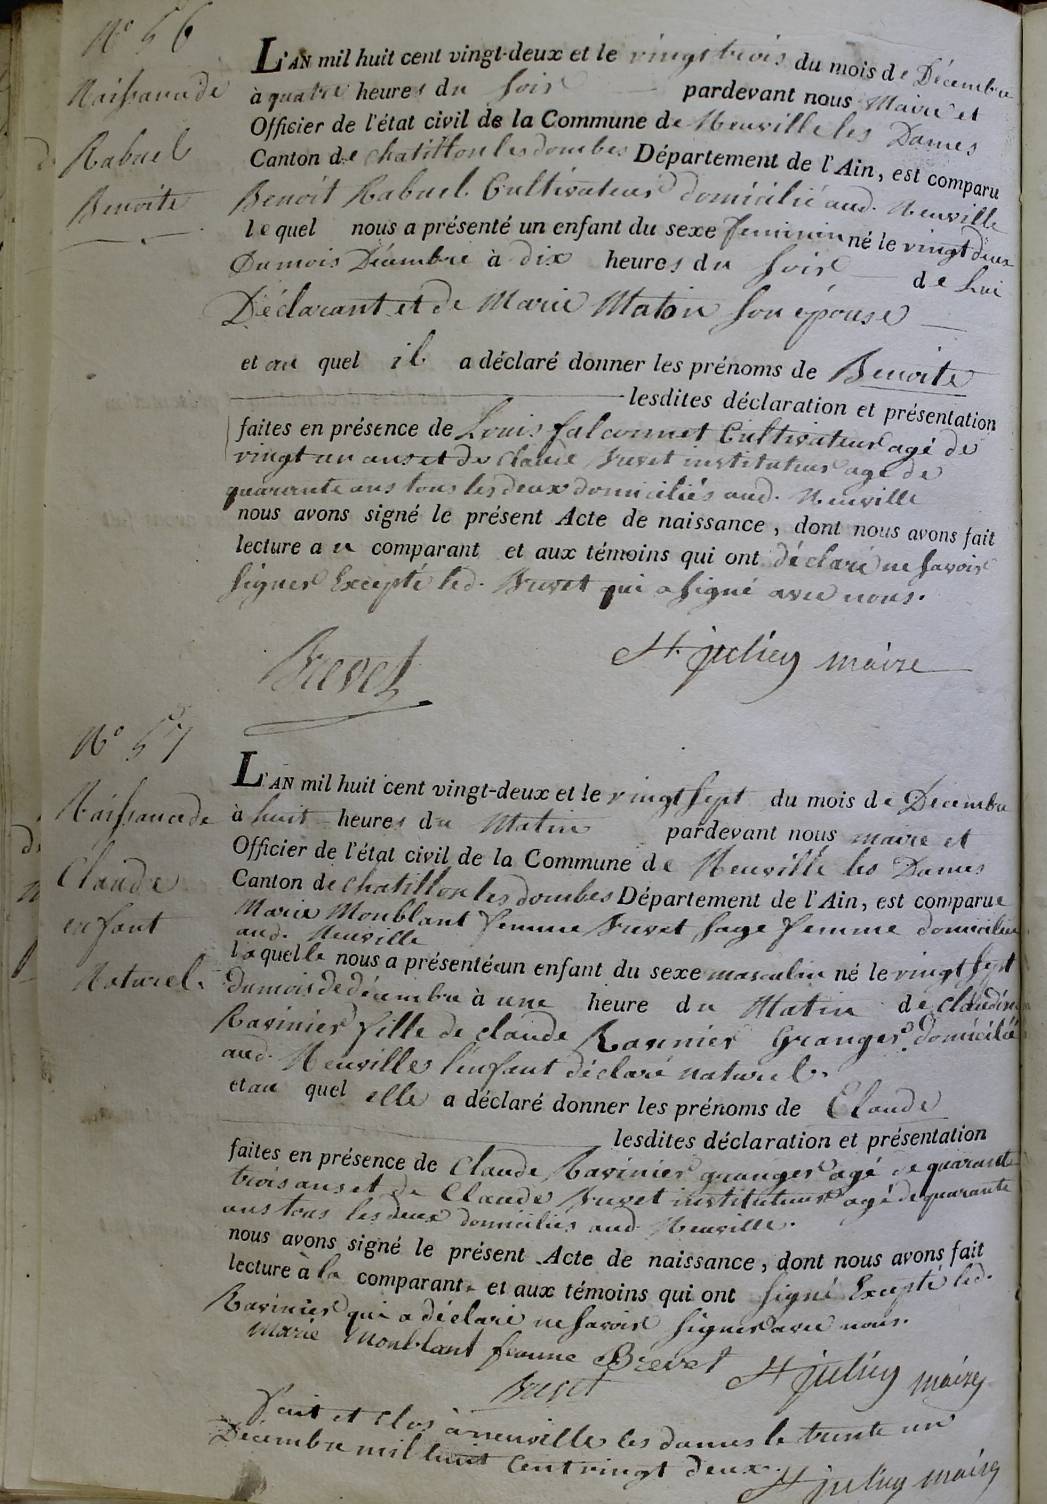 N° 56
Naissance de
Rabuel
Benoite
L'AN mil huit cent vingt-deux et le vingt trois du mois de Décembre
à quatre heures du soir pardevant nous Maire et
Officier de l'état civil de la Commune de Neuville les Dames
Canton de chatillon les dombes Département de l'Ain, est comparu
Benoit Rabuel Cultivateur domicilié aud. Neuville
lequel nous a présenté un enfant du sexe feminin né le vingt deux
Dumois Décembre à dix heures du soir de Lui
Déclarant et de Marie Maton son épouse
et au quel il a déclaré donner les prénoms de Benoite
lesdites déclaration et présentation
faites en présence de Louis falconnet Cultivateur agé de
vingt un ans et de Claude Brevet instituteur agé de
quarante ans tous les deux domiciliés aud. Neuville
nous avons signé le présent Acte de naissance, dont nous avons fait
lecture au comparant et aux témoins qui ont déclaré ne savoir
signer Excepté led. Brevet qui a signé avec nous.
Brevet St julien maire
N° 57
Naissance de
Claude
enfant
Naturel.
L'AN mil huit cent vingt-deux et le vingt sept du mois de Decembre
à huit heures du Matin pardevant nous maire et
Officier de l'état civil de la Commune de Neuville les Dames
Canton de chatillon les dombes Département de l'Ain, est comparue
Marie Monblant femme Brevet sage femme domiciliée
aud. Neuville
laquelle nous a présenté un enfant du sexe masculin né le vingt sept
dumois de decembre à une heure du Matin de Claudine
Ravinier fille de claude Ravinier Granger domicilié
aud. Neuville l'enfant déclaré naturel.
et au quel elle a déclaré donner les prénoms de Claude
lesdites déclaration et présentation
faites en présence de Claude Ravinier granger agé de quarante
trois ans et de Claude Brevet instituteur agé de quarante
ans tous les deux domiciliés aud. Neuville.
nous avons signé le présent Acte de naissance, dont nous avons fait
lecture à la comparante et aux témoins qui ont signé Excepté led.
Ravinier qui a déclaré ne savoir signer avec nous.
Marie Monblant femme Brevet St julien maire
Brevet
fait et clos à neuville les dames le trente un
Decembre mil huit cent vingt deux. St julien maire